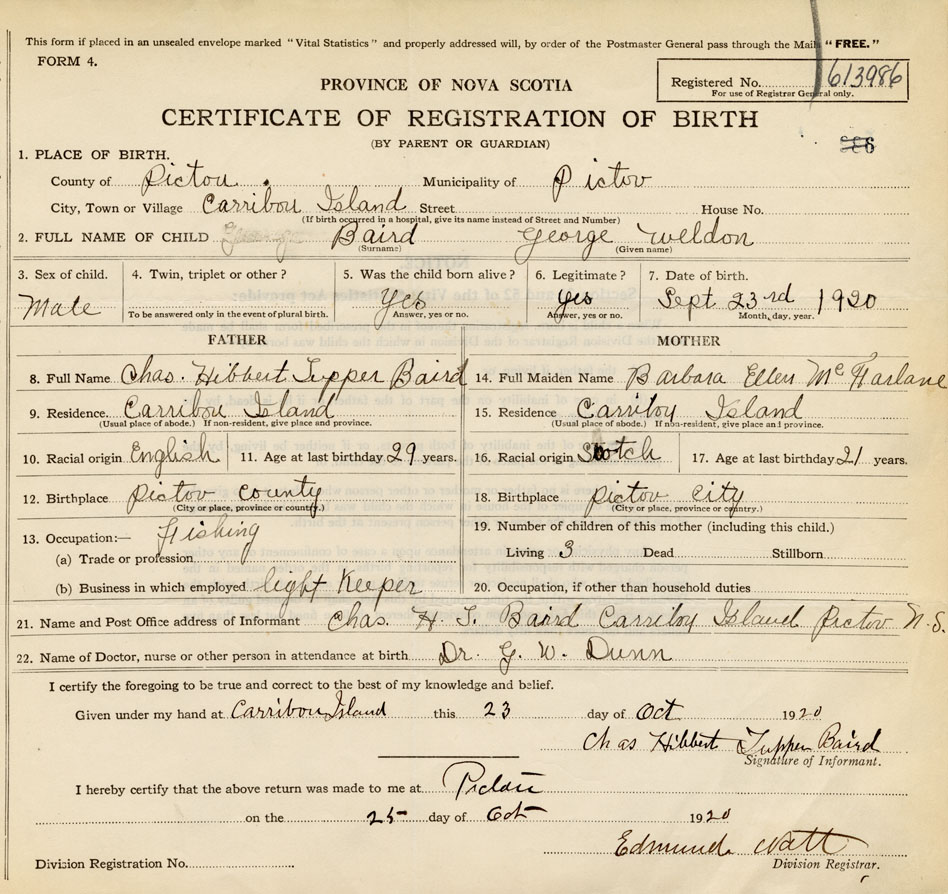 This form if placed in an unsealed envelope marked "Vital Statistics" and properly addressed will, by order of the Postmaster General pass through the Mails "FREE."
FORM 4.
PROVINCE OF NOVA SCOTIA
Registered No. 613986
For use of Registrar General only.
CERTIFICATE OF REGISTRATION OF BIRTH
(BY PARENT OR GUARDIAN)
1. PLACE OF BIRTH.
County of Pictou Municipality of Pictov
City, Town or Village Carribou Island Street House No.
(If birth occurred in a hospital, give its name instead of Street and Number)
2. FULL NAME OF CHILD Baird George Weldon
(Surname) (Given name)
3. Sex of child. 4. Twin, triplet or other? 5. Was the child born alive? 6. Legitimate? 7. Date of birth.
Male Yes yes Sept 23rd 1920
To be answered only in the event of plural birth. Answer, yes or no. Answer, yes or no. Month, day, year.
FATHER MOTHER
8. Full Name Chas. Hibbert Tupper Baird 14. Full Maiden Name Barbara Ellen McFarlane
9. Residence. Carribou Island 15. Residence Carriboy Island
(Usual place of abode.) If non-resident, give place and province. (Usual place of abode.) If non-resident, give place and province.
10. Racial origin English 11. Age at last birthday 29 years. 16. Racial origin Scotch 17. Age at last birthday 21 years.
12. Birthplace Pictov county 18. Birthplace pictov city
(City or place, province or country.) (City or place, province or country.)
13. Occupation:— Fishing 19. Number of children of this mother (including this child.)
(a) Trade or profession Living 3 Dead Stillborn
(b) Business in which employed light Keeper 20. Occupation, if other than household duties
21. Name and Post Office address of Informant Chas. H. T. Baird Carriboy Island Pictov N.S.
22. Name of Doctor, nurse or other person in attendance at birth Dr. G. W. Dunn
I certify the foregoing to be true and correct to the best of my knowledge and belief.
Given under my hand at Carribou Island this 23 day of Oct 1920
Chas Hibbert Tupper Baird
Signature of Informant.
I hereby certify that the above return was made to me at Pictou
on the 25 day of Oct 1920
Edmund Watt
Division Registration No. Division Registrar.